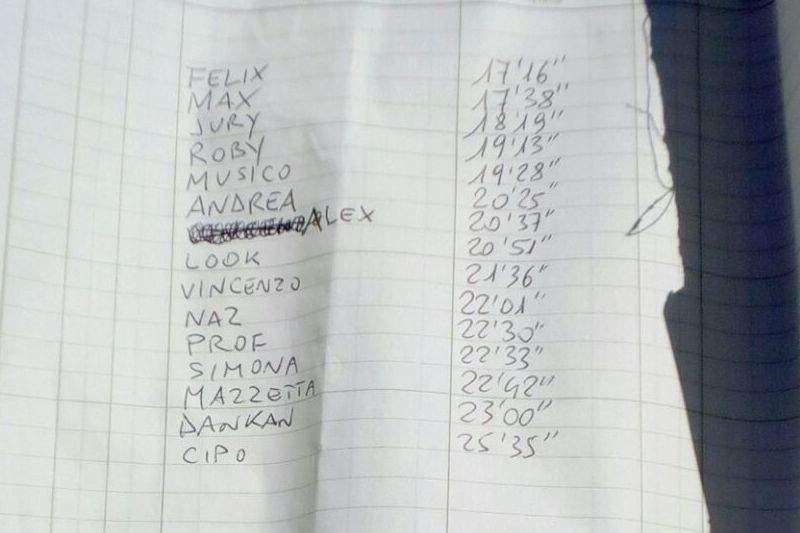 FELIX 17'16"
MAX 17'38"
JURY 18'19"
ROBY 19'13"
MUSICO 19'28"
ANDREA 20'25"
ALEX 20'37"
LOOK 20'51"
VINCENZO 21'36"
NAZ 22'01"
PROF 22'30"
SIMONA 22'33"
MAZZETTA 22'42"
DANKAN 23'00"
CIPO 25'35"